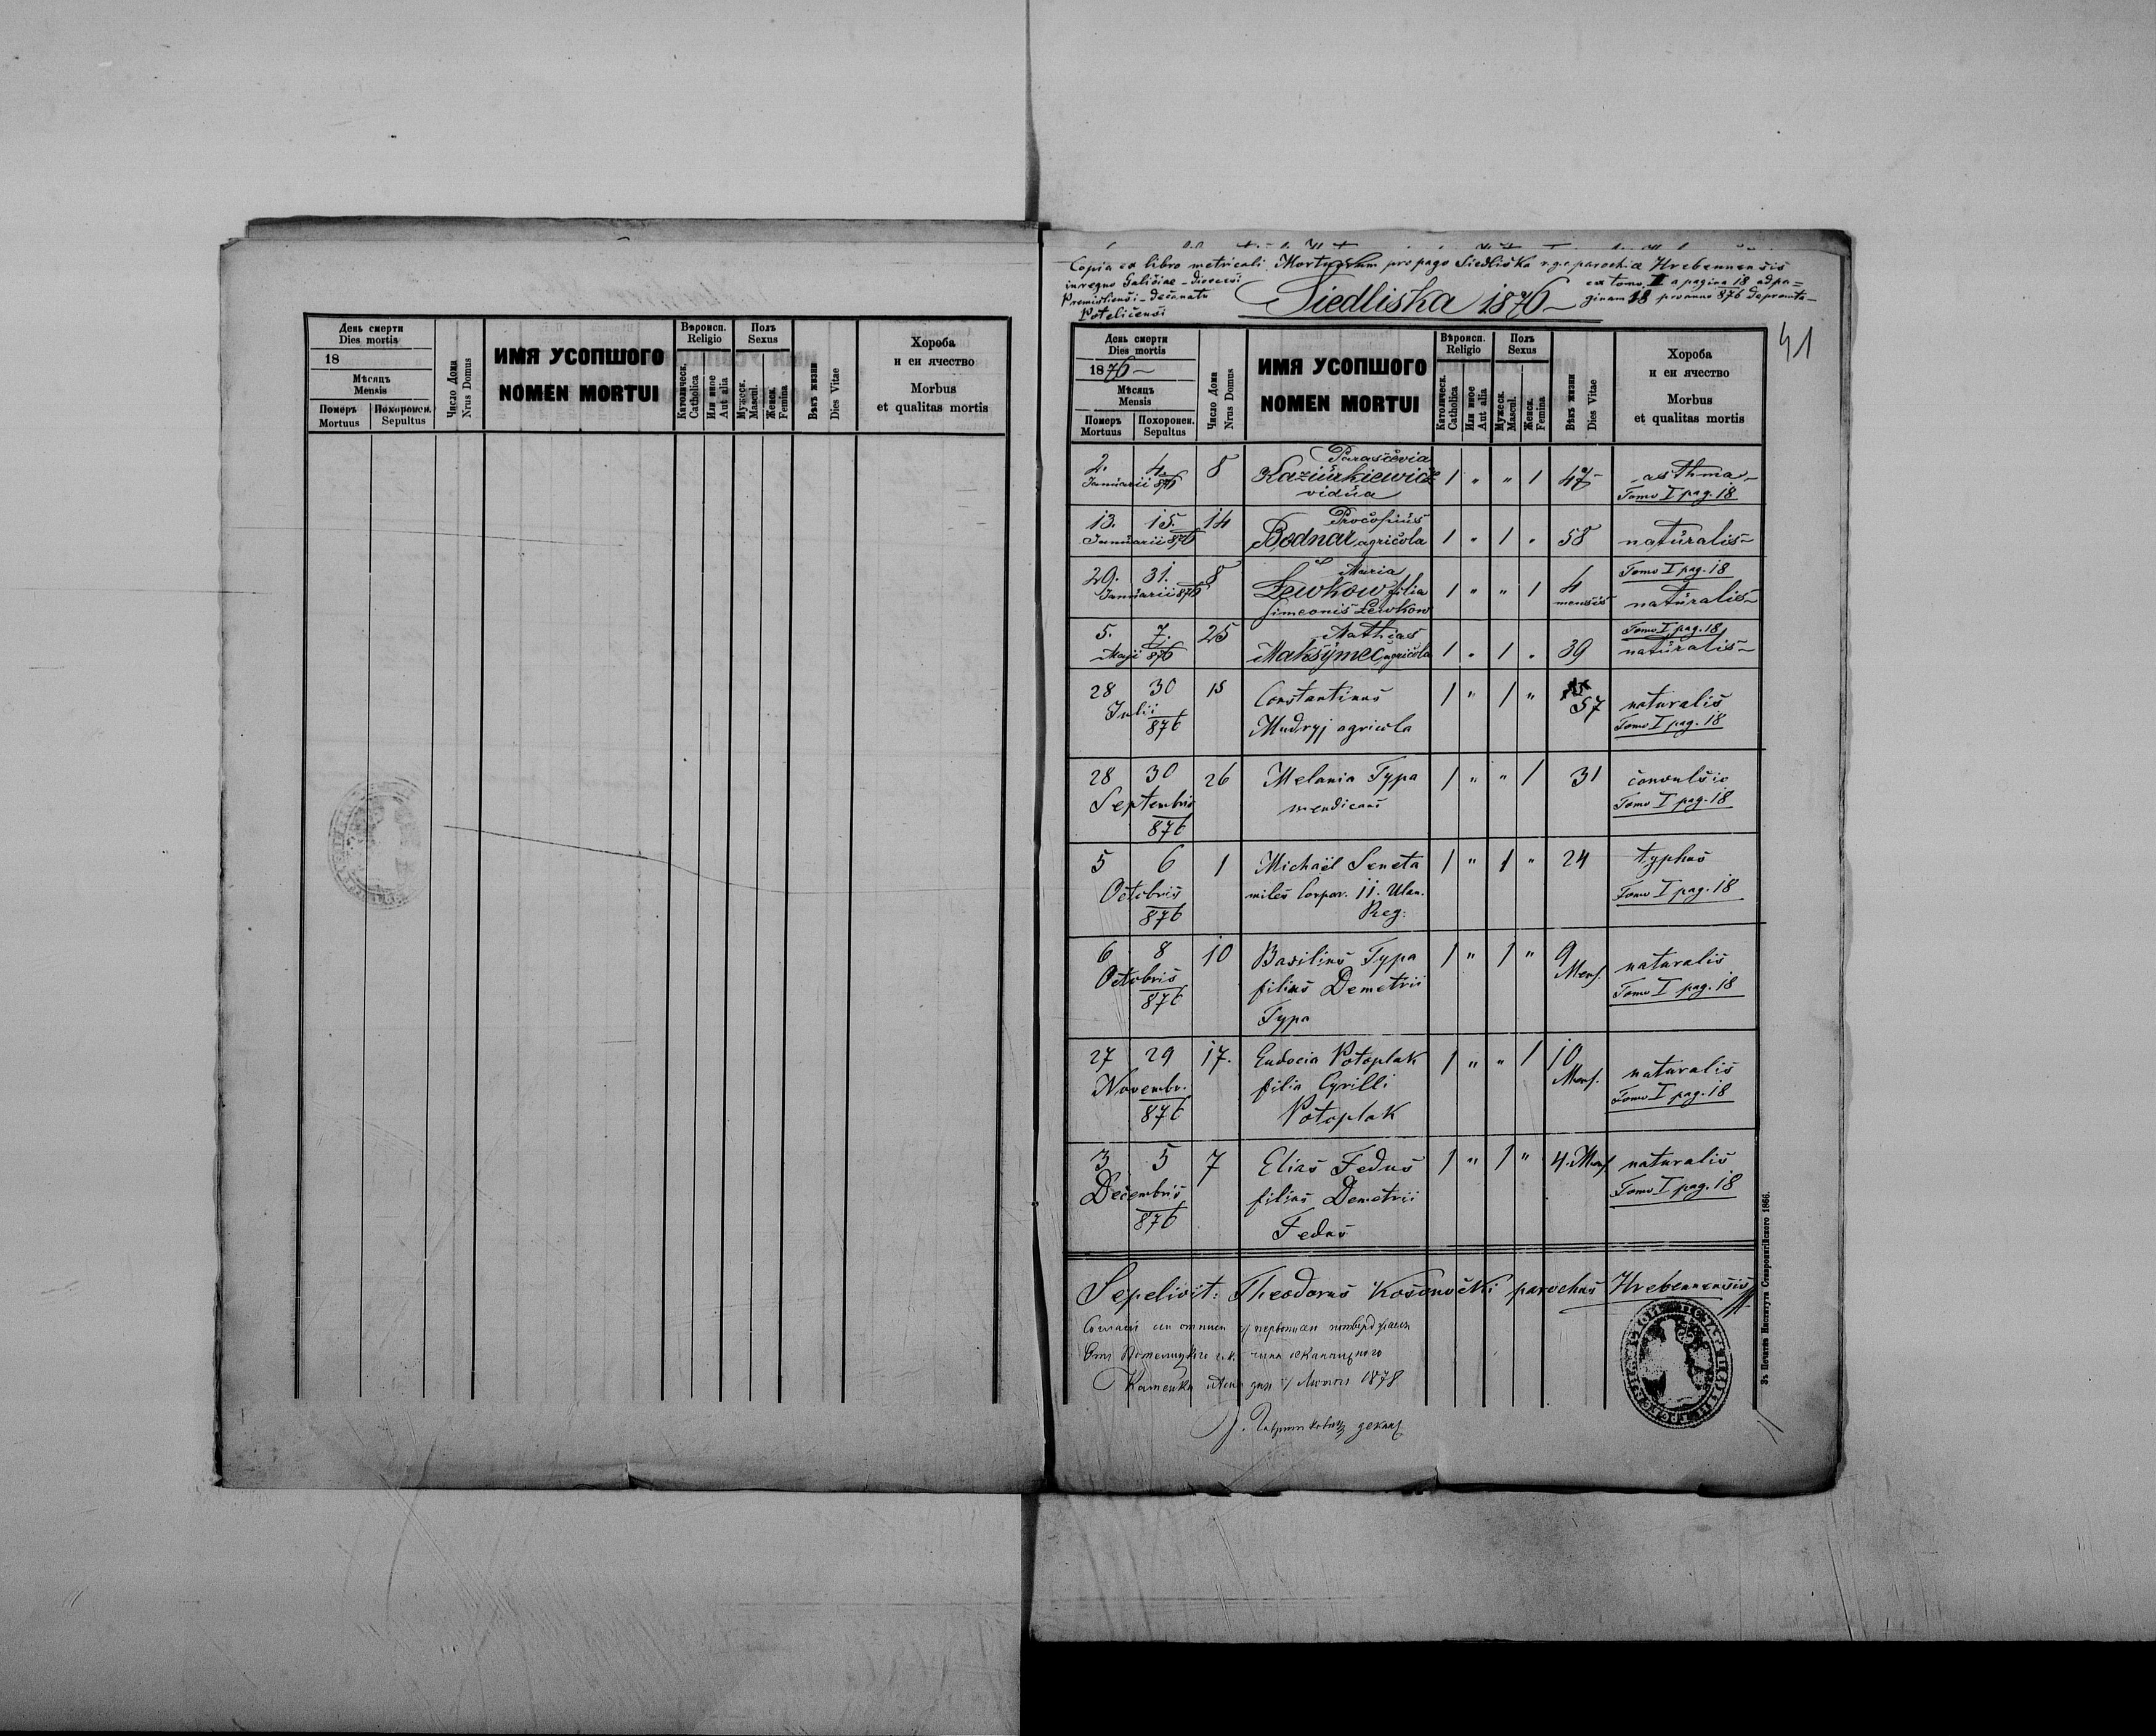 День смерти
Dies mortis
18
Мѣсяцъ
Mensis
Померъ
Mortuus
Похоронен.
Sepultus
Число Дома
Nrus Domus
ИМЯ УСОПШОГО
NOMEN MORTUI
Вѣроисп.
Religio
Католическ.
Catholica
Или иное
Aut alia
Полъ
Sexus
Мужеск.
Mascul.
Женск.
Femina
Вѣкъ жизни
Dies Vitae
Хороба
и еи ячество
Morbus
et qualitas mortis
Copia ex libro metricali Mortuorum pro pago Siedliska r.g.c. parochiae Hrebennensis
in regno Galiciae - dioecesi
Premisliensi - decanatu
Poteličensi
Siedliska 1876
ex tomo I a pagina 18 ad pa=
ginam 18 pro anno 876 deprompta
41
День смерти
Dies mortis
1876
Мѣсяцъ
Mensis
Померъ
Mortuus
Похоронен.
Sepultus
Число Дома
Nrus Domus
ИМЯ УСОПШОГО
NOMEN MORTUI
Вѣроисп.
Religio
Католическ.
Catholica
Или иное
Aut alia
Полъ
Sexus
Мужеск.
Mascul.
Женск.
Femina
Вѣкъ жизни
Dies Vitae
Хороба
и еи ячество
Morbus
et qualitas mortis
2. 4. 8 Parascevia 1 " " 1 47 asthma
Januarii 876 Kaziurkiewicz
vidua Tomo I pag. 18
13. 15. 14 Procopius
Januarii 876 Bodnar agricola 1 " 1 " 58 naturalis
29. 31. 8 Maria Tomo I pag. 18
Januarii 876 Lewkow filia 1 " " 1 4 mensis naturalis
Simeonis Lewkow
5. 7. 25 Mathias Tomo I pag. 18
Maji 876 Maksymec agricola 1 " 1 " 39 naturalis
28 30 15 Constantinus 1 " 1 " 57 naturalis
Julii
876 Mudryj agricola Tomo I pag. 18
28 30 26 Melania Typa 1 " " 1 31 convulsio
Septembris mendicans Tomo I pag. 18
876
5 6 1 Michaël Seneta 1 " 1 " 24 typhus
Octobris miles Corpor. 11. Ulan. Tomo I pag. 18
876 Reg:
6 8 10 Basilius Typa 1 " 1 " 9 Mens. naturalis
Octobris filius Demetrii Tomo I pag. 18
876 Typa
27 29 17. Eudocia Potoplak 1 " " 1 10 Mens. naturalis
Novembr. filia Cyrilli Tomo I pag. 18
876 Potoplak
3 5 7 Elias Fedus 1 " 1 " 4. Mens. naturalis
Decembris filius Demetrii Tomo I pag. 18
876 Fedus
Sepelivit: Theodorus Kosonočki parochus Hrebennensis
1878
декан
Зъ Печатнѣ Института Ставропигійского 1866.